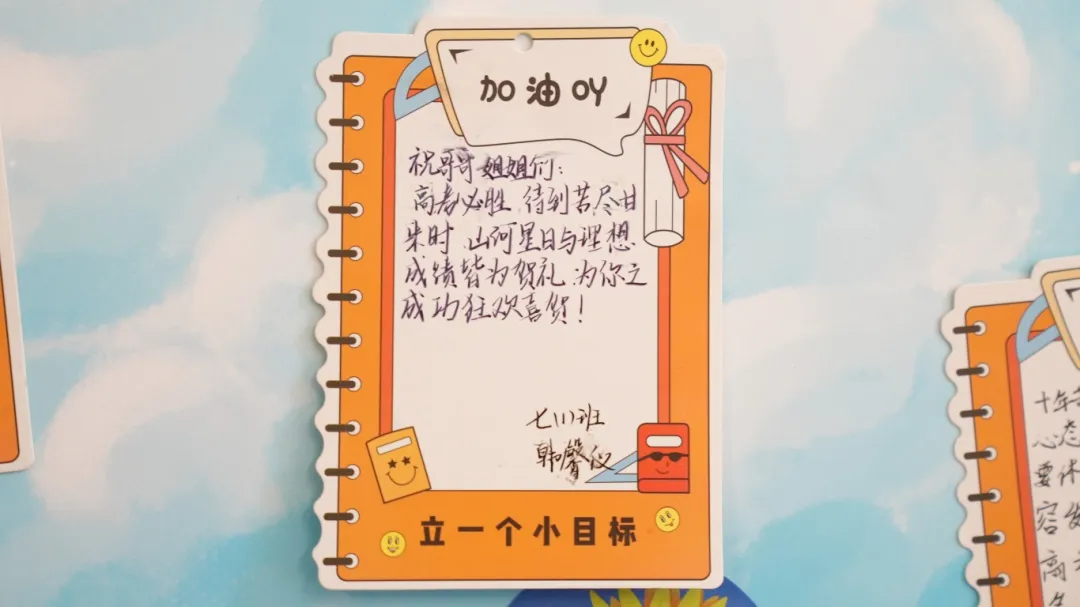 加油吖
祝哥哥姐姐们：
高考必胜 待到苦尽甘
来时 山河星日与理想
成绩皆为贺礼 为你之
成功狂欢喜贺！
七（1）班
韩馨仪
立一个小目标
十年
心态
要休
容发
高考